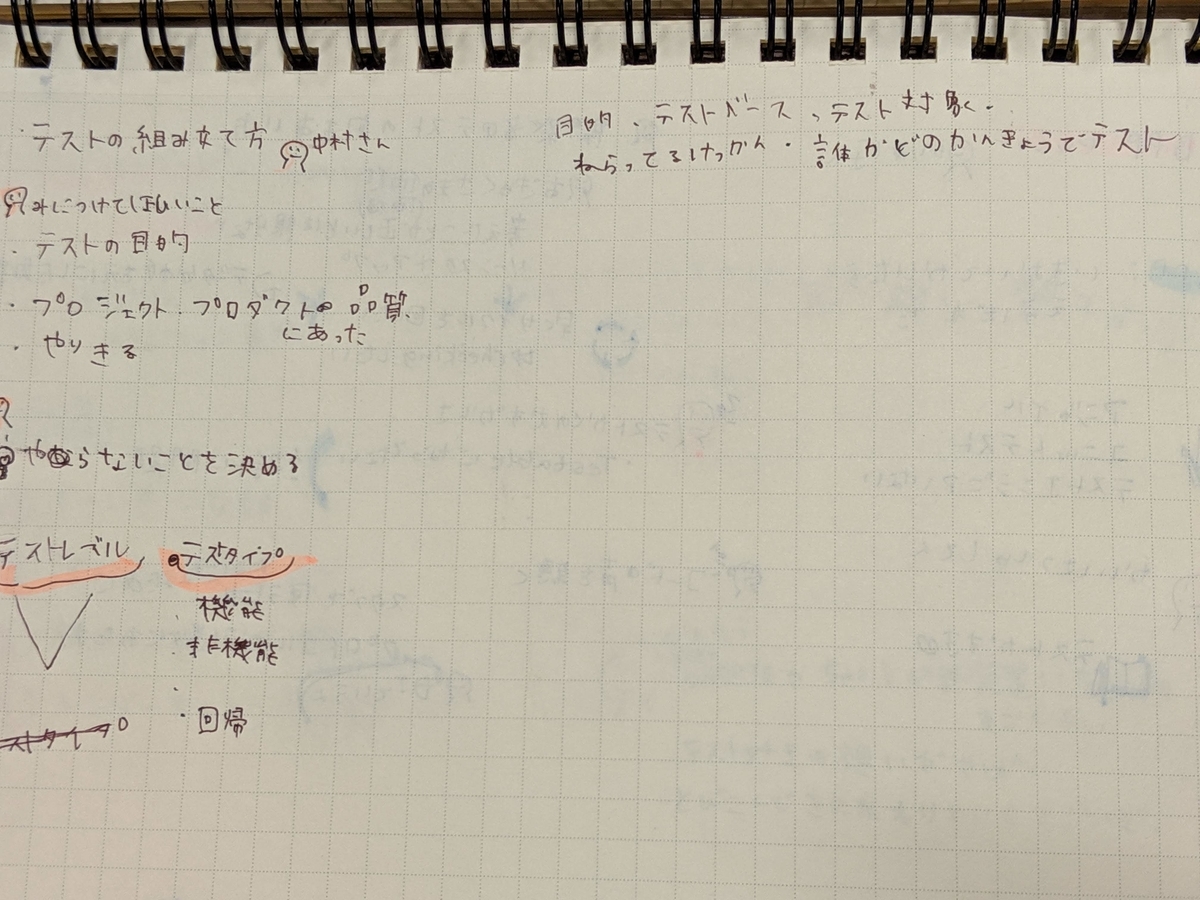 ・テストの組み立て方 中村さん
みにつけてほしいこと
・テストの目的
・プロジェクト・プロダクトの品質
にあった
・やりきる
やらないことを決める
テストレベル
・テストタイプ
・機能
・非機能
・
・回帰
ストタイプ
目的、テストベース、テスト対象、
ねらってるけっかん・誰がどのかんきょうでテスト